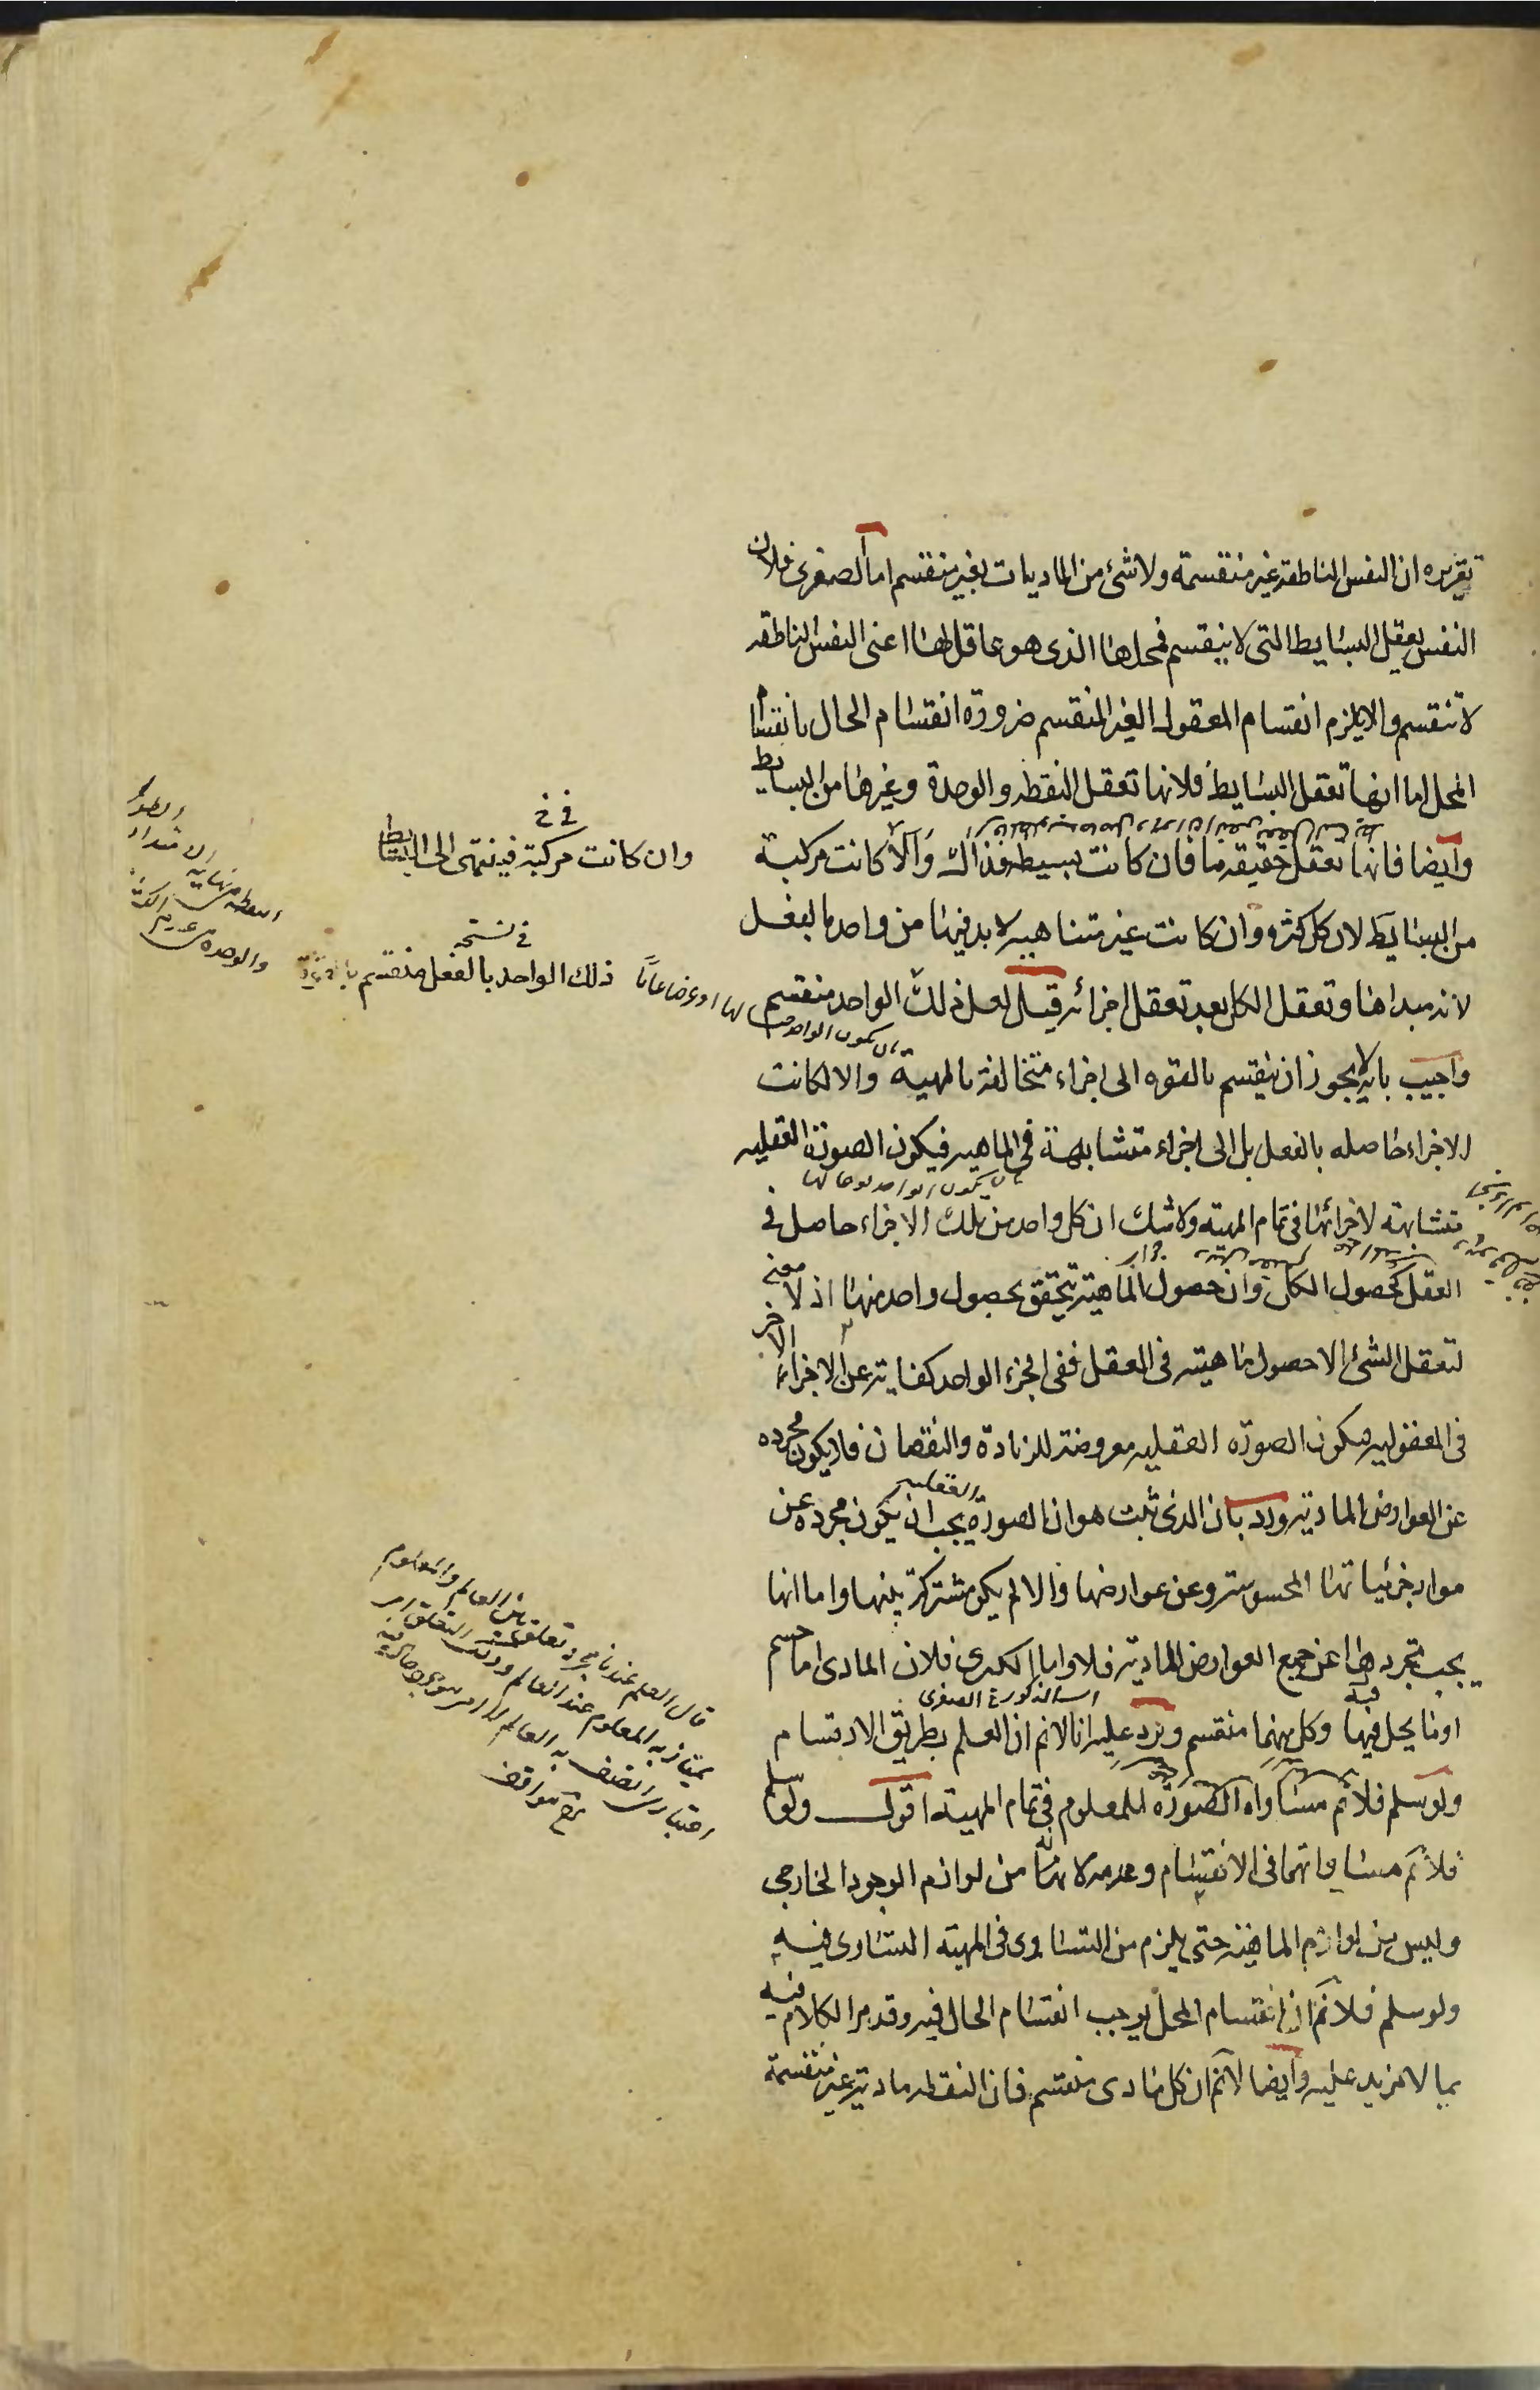 تقريره ان النفس الناطقة غير منقسمة ولا شئ من الماديات بغير منقسم اما الصغرى فلان
النفس يعقل البسايط التى لا ينقسم فمحلها الذى هو عاقل لها اعنى النفس الناطقه
لا تنقسم والا يلزم انقسام المعقول الغير المنقسم ضرورة انقسام الحال بانقسام
المحل اما انها تعقل البسايط فلانها تعقل النقطه والوحدة وغيرها من البسايط
وايضا فانها تعقل حقيقه ما فان كانت بسيطه فذاك والا كانت مركبة
من البسايط لان كل كثره وان كانت غير متناهيه لا بد فيها من واحد بالفعل
لانه مبداها وتعقل الكل بعد تعقل اجزائه قيل لعل ذلك الواحد منقسم
واجيب بانه لا يجوز ان ينقسم بالقوه الى اجزاء متخالفة بالمهية والا لكانت
الاجزاء حاصله بالفعل بل الى اجزاء متشابهة فى الماهيه فيكون الصورة العقليه
متشابهة لاجزائها فى تمام المهية ولا شك ان كل واحد من تلك الاجزاء حاصل فى
العقل كحصول الكل وان حصول الماهية يتحقق بحصول واحد منها اذ لا معنى
لتعقل الشئ الا حصول ماهيته فى العقل ففى الجزء الواحد كفاية عن الاجزاء الاخر
فى المعقوليه فيكون الصورة العقليه معروضة للزيادة والنقصان فلا يكون مجرده
عن العوارض المادية ورد بان الذى ثبت هو ان الصورة العقليه يجب ان يكون مجرده عن
مواد جزئياتها المحسوسة وعن عوارضها والا لم يكن مشتركة بينها واما انها
يجب تجردها عن جميع العوارض المادية فلا واما الكبرى فلان المادى اما جسم
او ما يحل فيها وكل منهما منقسم ويرد عليه انا لا نم ان العلم بطريق الارتسام
ولو سلم فلا نم مساواه الصورة للمعلوم فى تمام المهية اقول ولو سلم
فلا نم مساواتهما فى الانقسام وعدمه لانه من لوازم الوجود الخارجى
وليس من لوازم الماهية حتى يلزم من التساوى فى المهية التساوى فيه
ولو سلم فلا نم ان انقسام المحل يوجب انقسام الحال فيه وقد مر الكلام فيه
بما لا مزيد عليه وايضا لا نم ان كل مادى منقسم فان النقطه مادية غير منقسمة
فى خ
وان كانت مركبة فينتهى الى البسايط
فى نسخه
ذلك الواحد بالفعل منقسم
النقطه نهاية
والوحدة عدم
قال العلم عندنا مجرد تعلق بين العالم والمعلوم
يمتاز به المعلوم عند العالم وذلك التعلق امر